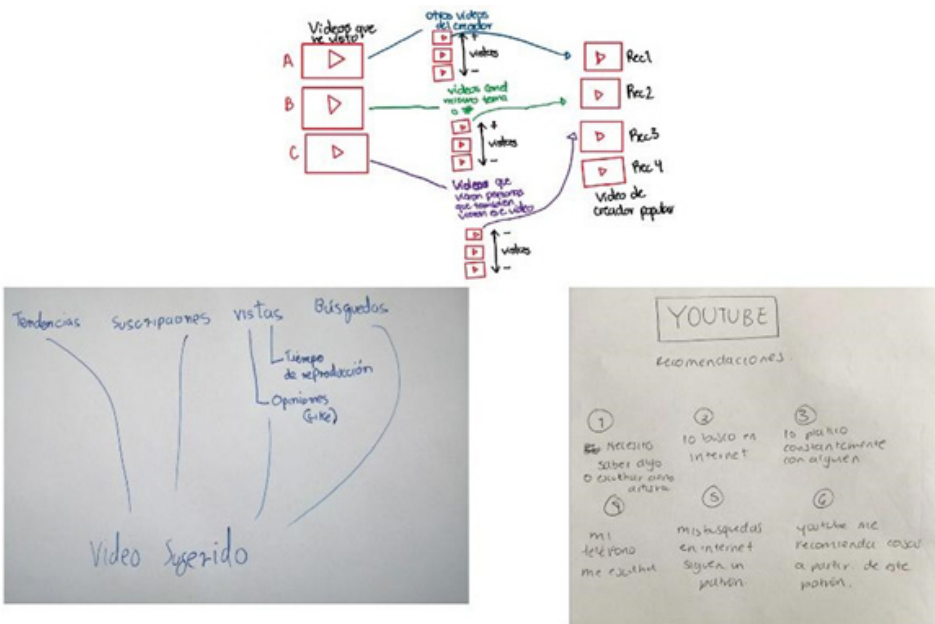 Videos que
he visto
A
B
C
otros videos
del creador
+
vistas
-
videos con el
mismo tema
o
+
vistas
-
Videos que
vieron personas
que también
vieron ese video
-
vistas
-
Rec1
Rec2
Rec3
Rec4
Video de
creador popular
Tendencias
Suscripciones
vistas
Búsquedas
Tiempo
de reproducción
Opiniones
(like)
Video Sugerido
YOUTUBE
recomendaciones.
1
Necesito
saber algo
o escuchar cierto
artista
2
lo busco en
internet
3
lo platico
constantemente
con alguien
4
mi
teléfono
me escucha
5
mis busquedas
en internet
siguen un
patrón
6
youtube me
recomienda cosas
a partir de este
patrón.